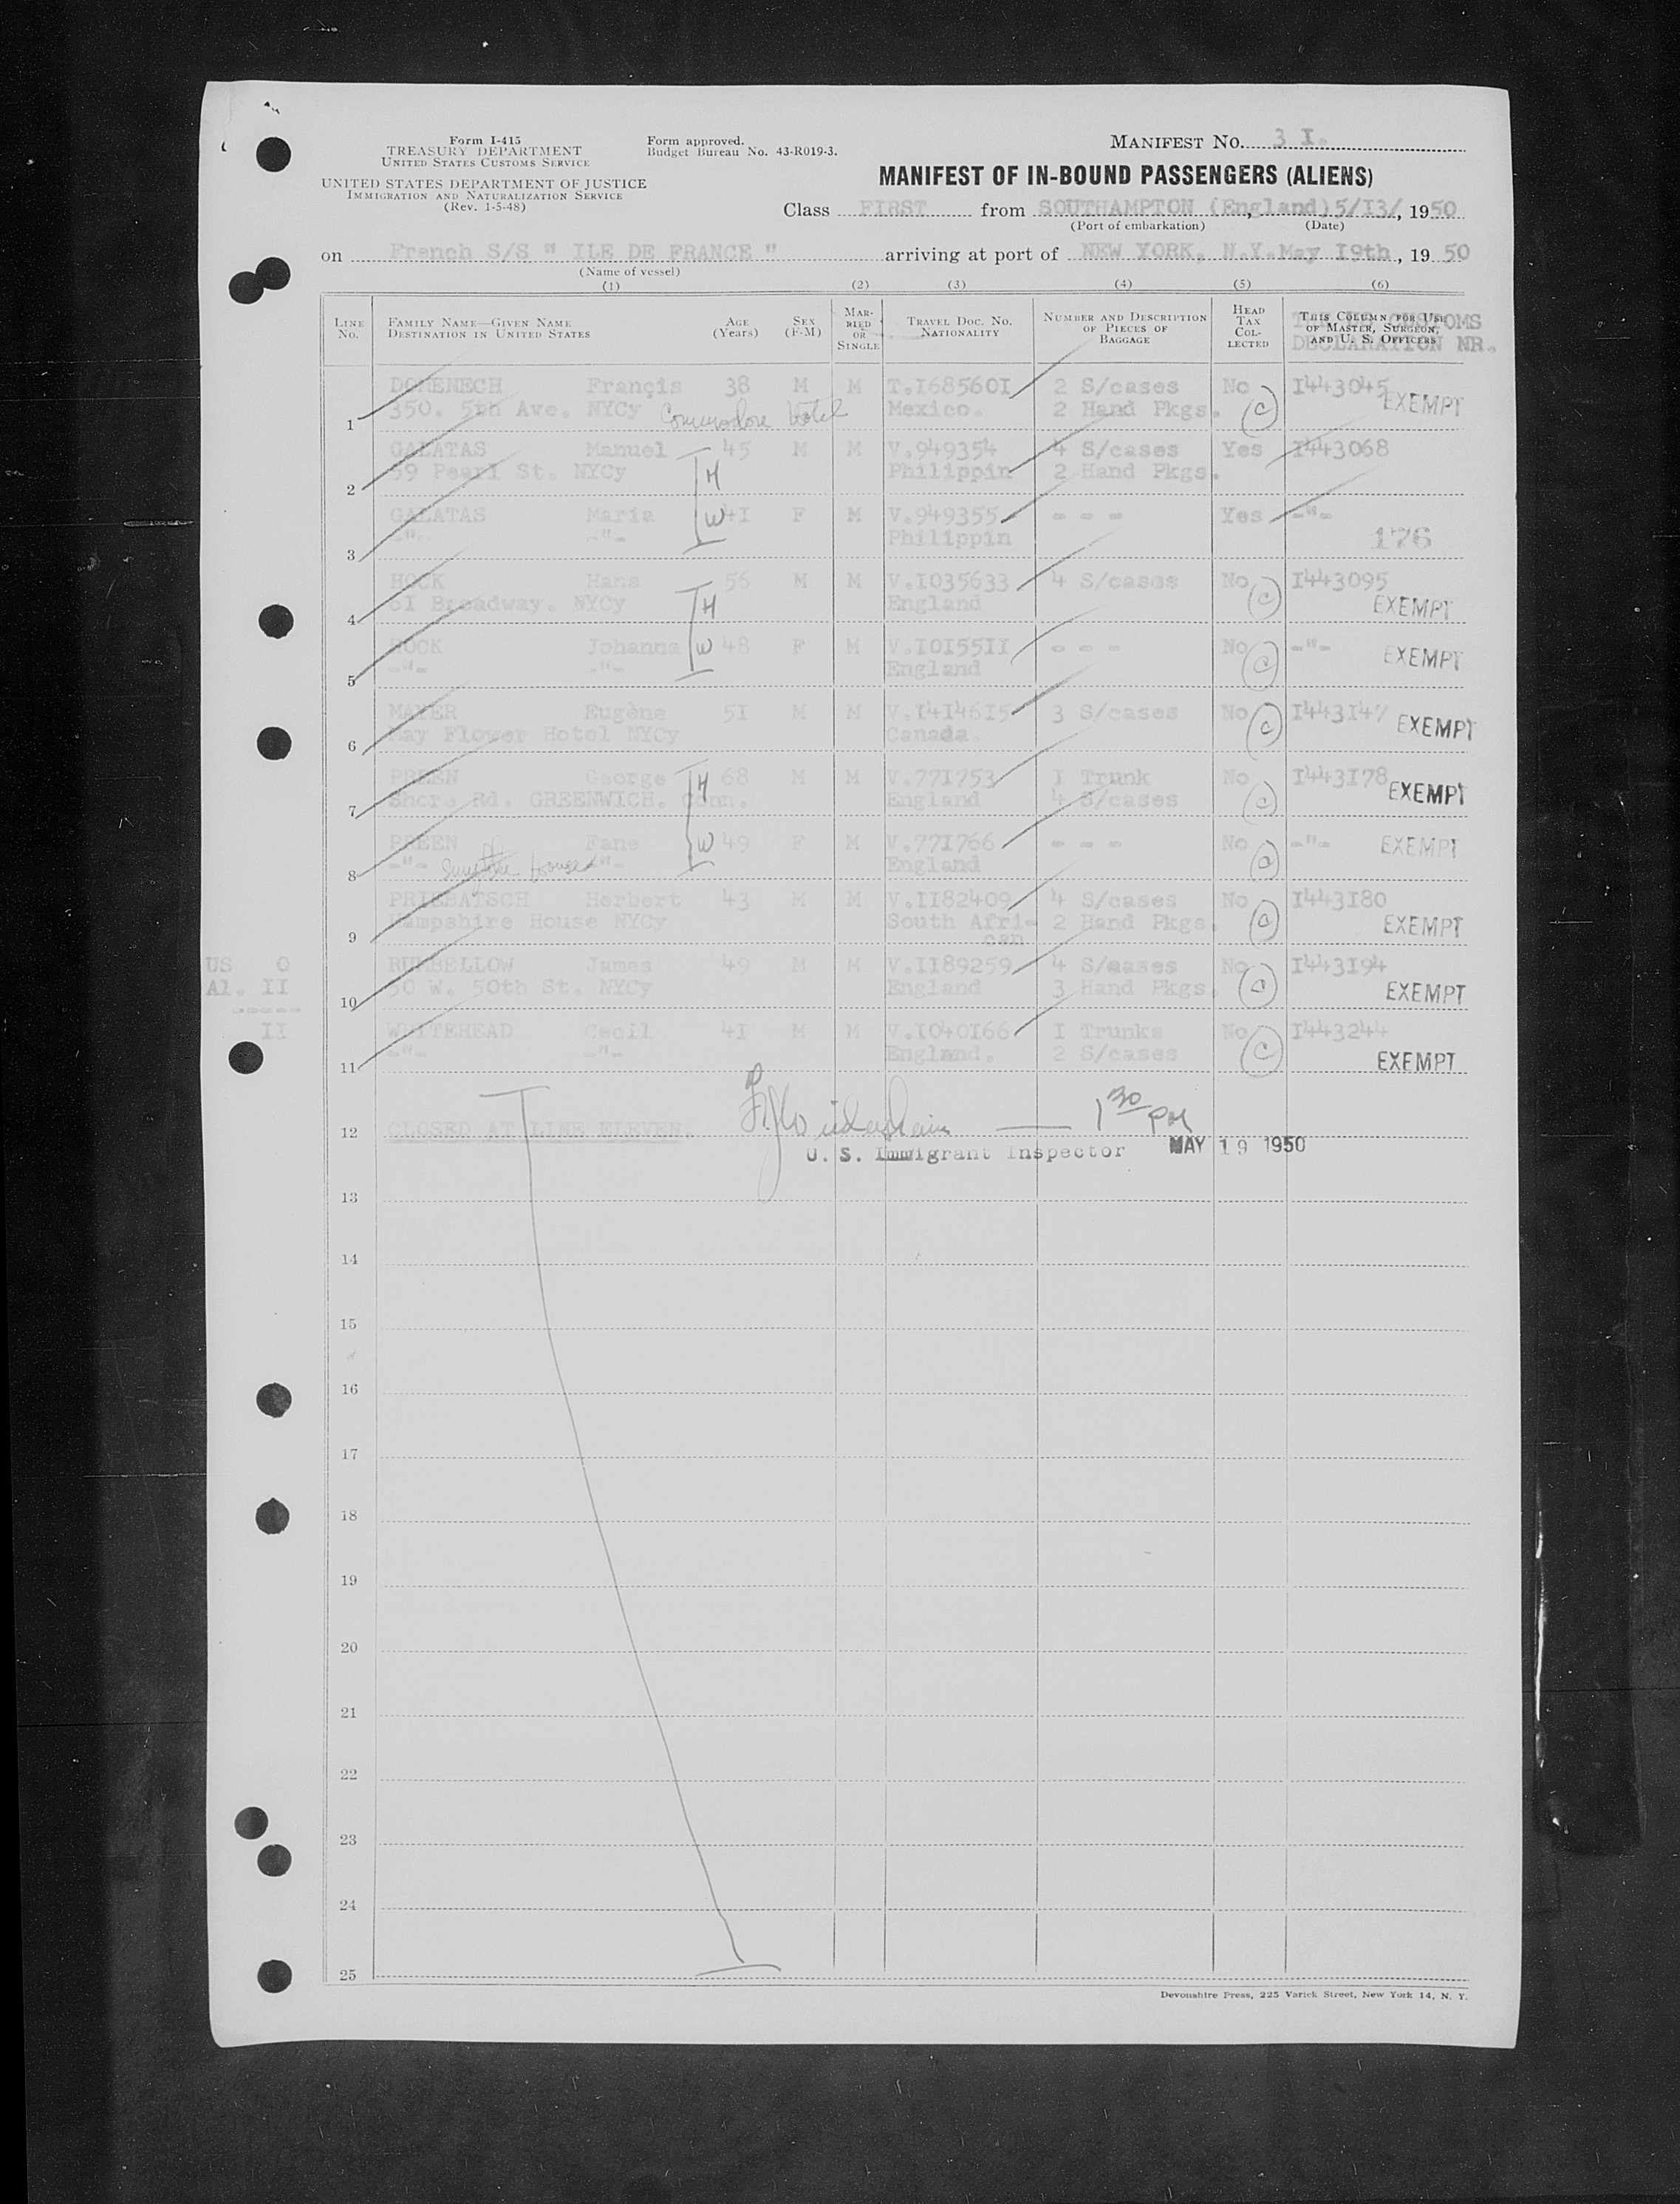 Form I-415
TREASURY DEPARTMENT
UNITED STATES CUSTOMS SERVICE
UNITED STATES DEPARTMENT OF JUSTICE
IMMIGRATION AND NATURALIZATION SERVICE
(Rev. 1-5-48)
Form approved.
Budget Bureau No. 43-R019-3.
MANIFEST No. 3 I.
MANIFEST OF IN-BOUND PASSENGERS (ALIENS)
Class FIRST from SOUTHAMPTON (England) 5/I3/, 1950
(Port of embarkation) (Date)
on French S/S " ILE DE FRANCE " arriving at port of NEW YORK, N.Y. May I9th, 1950
(Name of vessel)
(1) (2) (3) (4) (5) (6)
LINE No. FAMILY NAME—GIVEN NAME DESTINATION IN UNITED STATES AGE (Years) SEX (F-M) MARRIED OR SINGLE TRAVEL DOC. NO. NATIONALITY NUMBER AND DESCRIPTION OF PIECES OF BAGGAGE HEAD TAX COLLECTED THIS COLUMN FOR USE OF MASTER, SURGEON, AND U. S. OFFICERS
DECLARATION NR.
DOMENECH Françis 38 M M T.I68560I 2 S/cases No I443045 EXEMPT
1 350. 5th Ave. NYCy Commodore Hotel Mexico. 2 Hand Pkgs. C
GALATAS Manuel 45 M M V.949354 4 S/cases Yes I443068
2 59 Pearl St. NYCy H Philippin 2 Hand Pkgs.
GALATAS Maria W 4I F M V.949355 - - - Yes -"-
3 -"- -"- Philippin 176
HOCK Hans 56 M M V.I035633 4 S/cases No I443095
4 6I Broadway. NYCy H England C EXEMPT
HOCK Johanna W 48 F M V.I0I55II - - - No -"- EXEMPT
5 -"- -"- England C
MAYER Eugène 5I M M V.I4I46I5 3 S/cases No I443147 EXEMPT
6 May Flower Hotel NYCy Canada. C
PREEN George H 68 M M V.77I753 I Trunk No I443I78
7 Shore Rd. GREENWICH. Conn. England 4 S/cases C EXEMPT
PREEN Fane W 49 F M V.77I766 - - - No -"- EXEMPT
8 -"- -"- England C
PRIEBATSCH Herbert 43 M M V.II82409 4 S/cases No I443I80
9 Hampshire House NYCy South African 2 Hand Pkgs. C EXEMPT
US 0
Al. II
-----
II
RUMBELLOW James 49 M M V.II89259 4 S/cases No I443I94
10 30 W. 50th St. NYCy England 3 Hand Pkgs. C EXEMPT
WHITEHEAD Cecil 4I M M V.I040I66 I Trunks No I443244
11 -"- -"- England. 2 S/cases C EXEMPT
1 30 PM
12 CLOSED AT LINE ELEVEN.
U. S. Immigrant Inspector MAY 19 1950
13
14
15
16
17
18
19
20
21
22
23
24
25
Devonshire Press, 225 Varick Street, New York 14, N. Y.